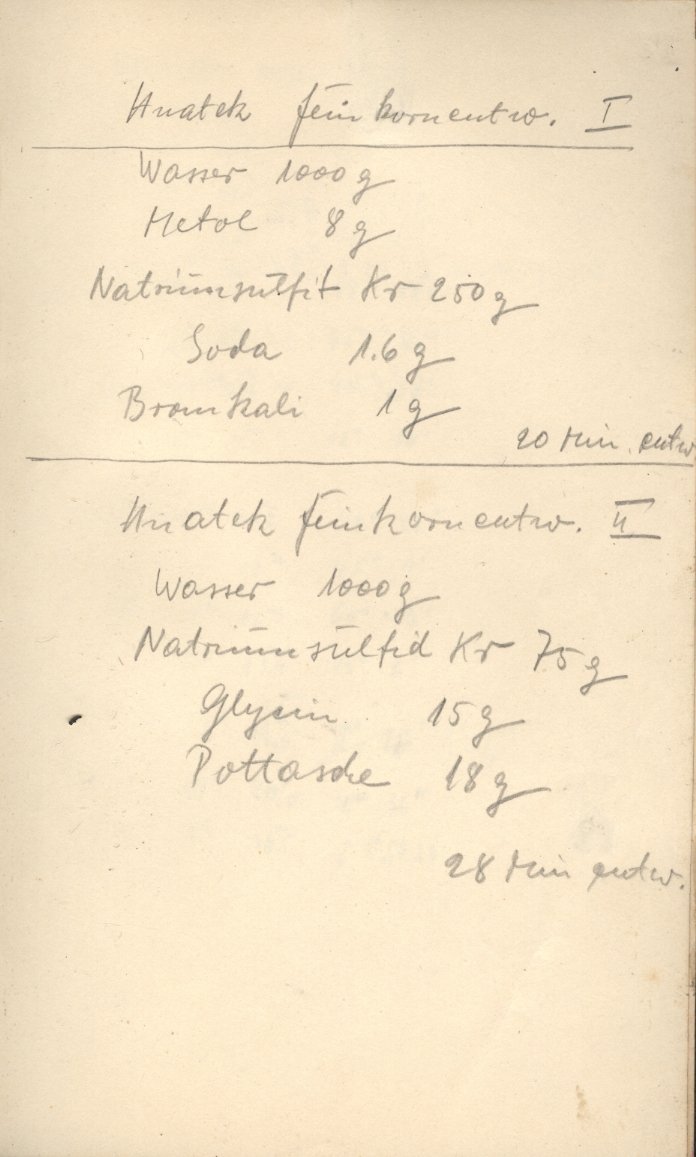 Hnatek feinkornentw. I
Wasser 1000 g
Metol 8 g
Natriumsulfit Kr 250 g
Soda 1.6 g
Bromkali 1 g
20 Min entw
Hnatek feinkornentw. II
Wasser 1000 g
Natriumsulfid Kr 75 g
Glycin 15 g
Pottasche 18 g
28 Min entw.